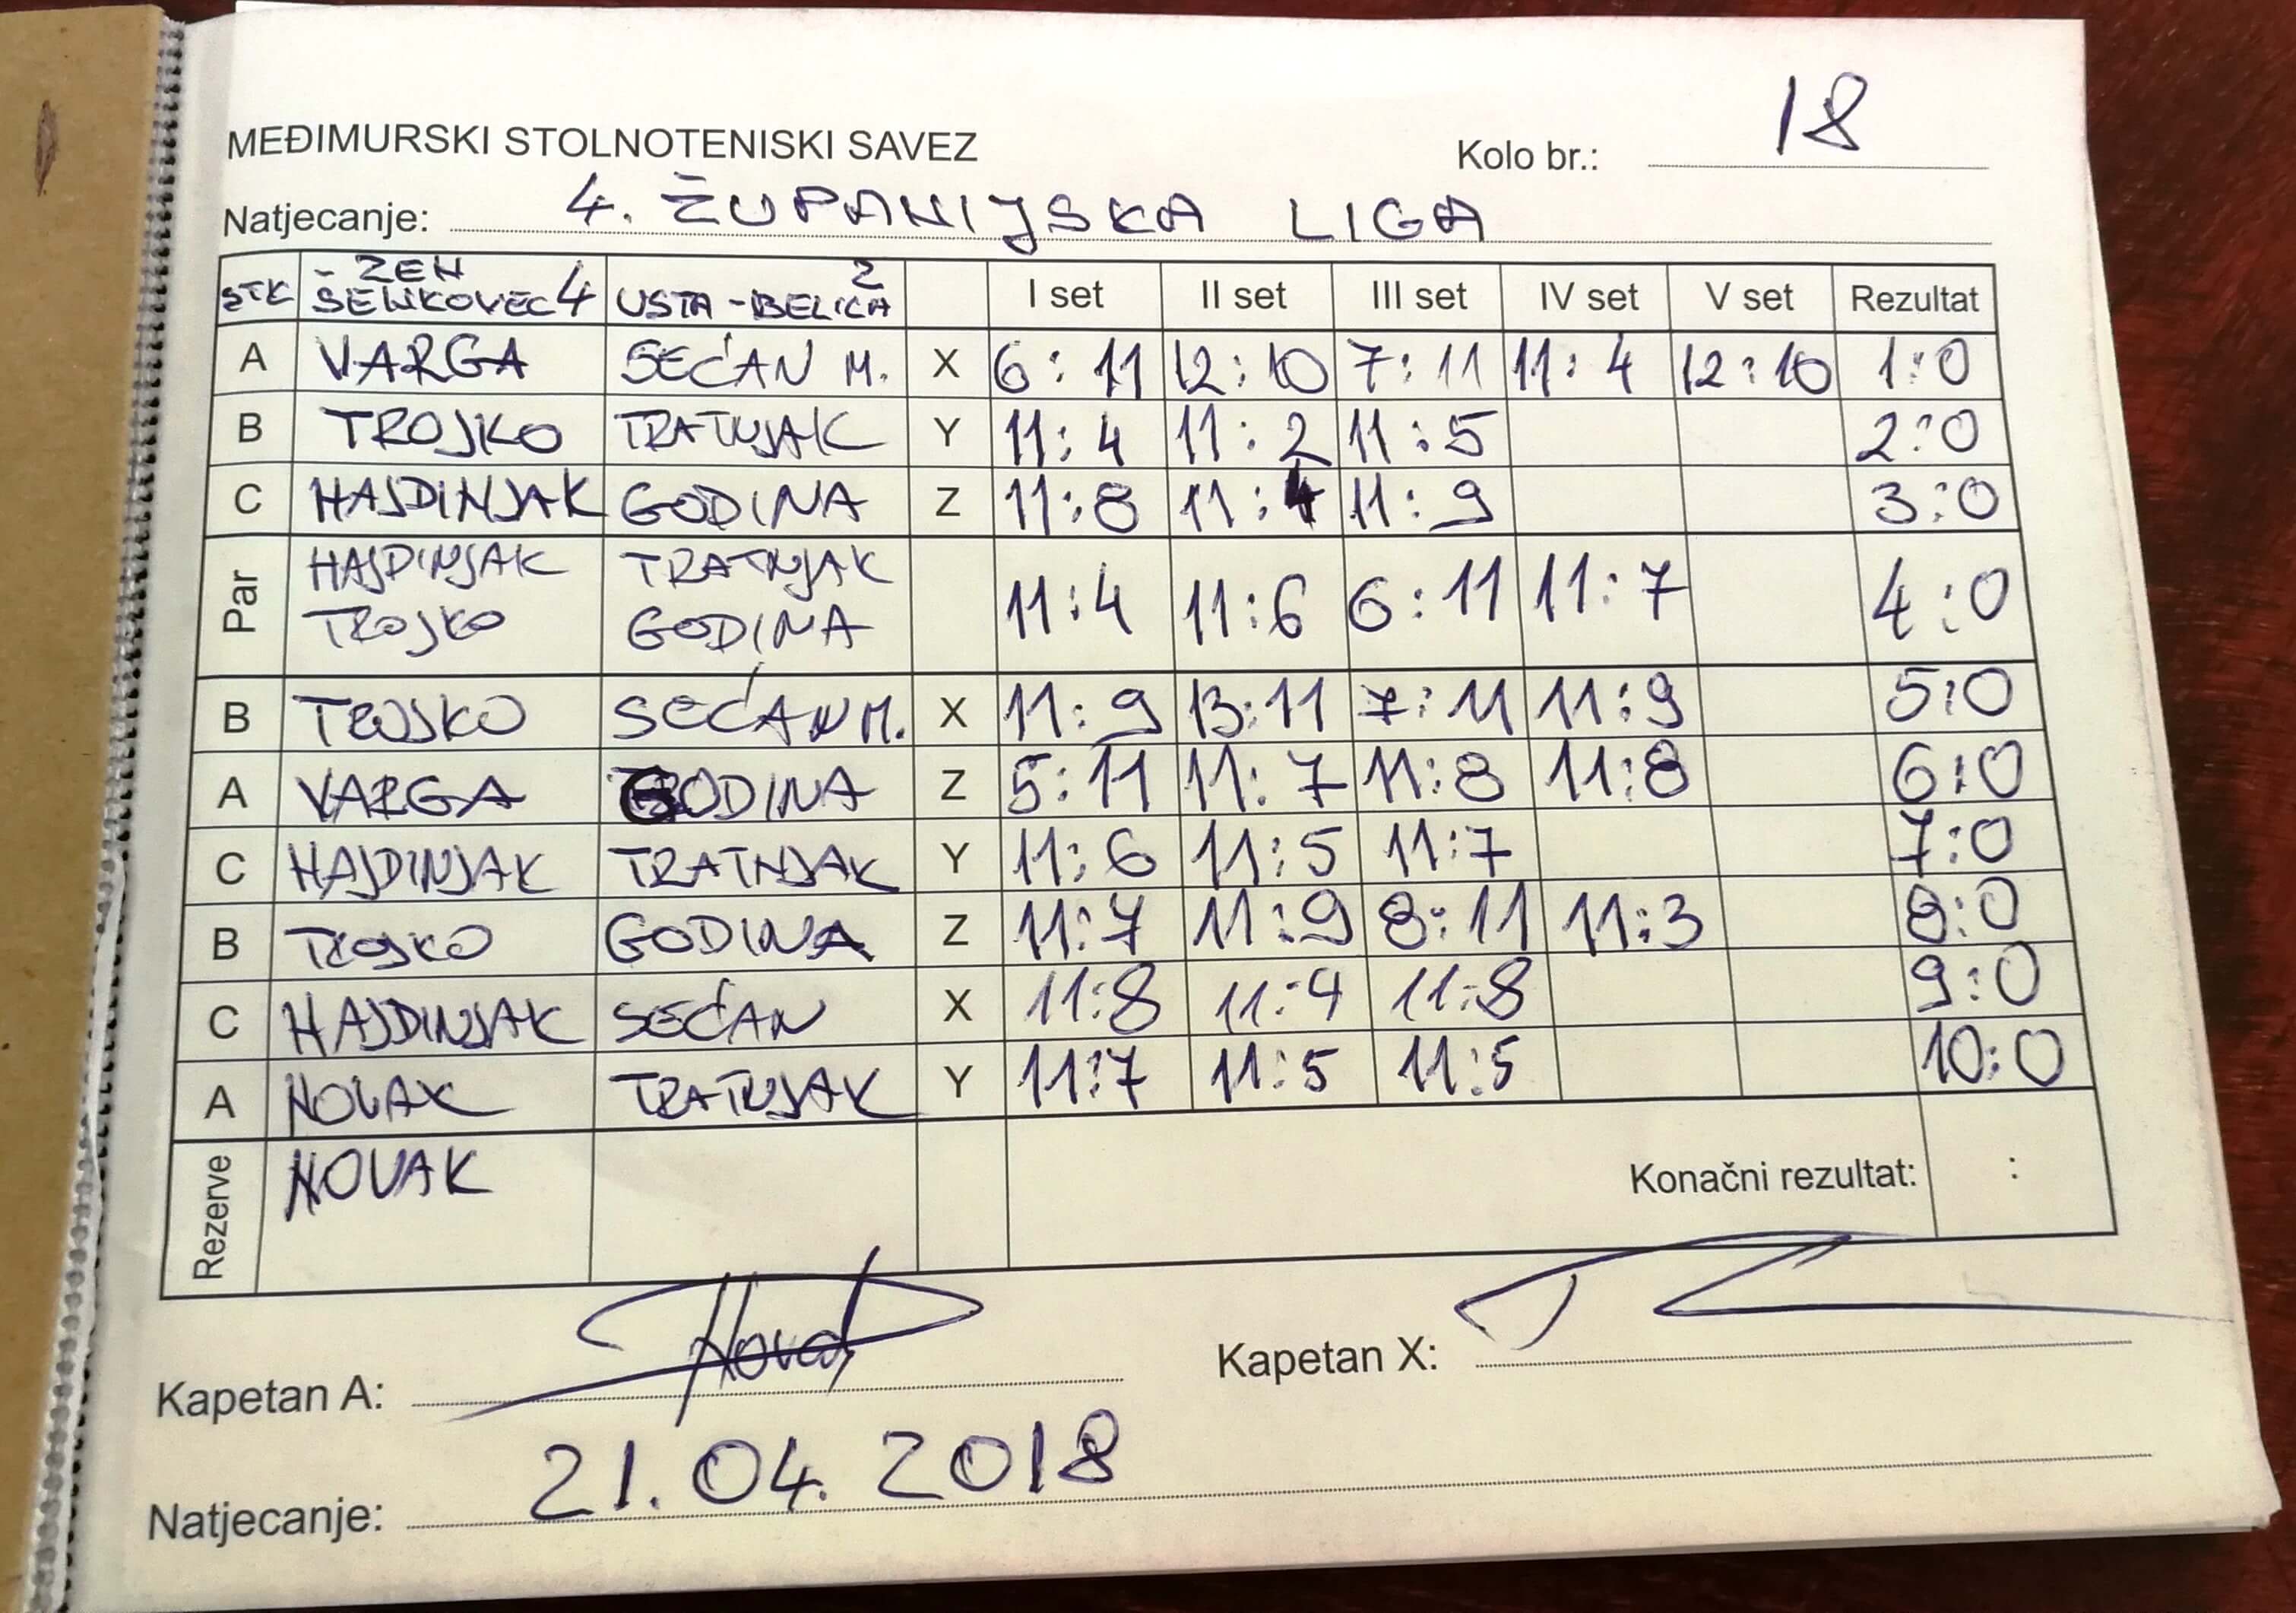 MEĐIMURSKI STOLNOTENISKI SAVEZ
Kolo br.: 18
Natjecanje: 4. ŽUPANIJSKA LIGA
STK - ZEN ŠENKOVEC 4 USTA - BELICA 2 I set II set III set IV set V set Rezultat
A VARGA SEČAN M. X 6:11 12:10 7:11 11:4 12:10 1:0
B TROJKO TRATNJAK Y 11:4 11:2 11:5 2:0
C HAJDINJAK GODINA Z 11:8 11:4 11:9 3:0
Par HAJDINJAK TRATNJAK 11:4 11:6 6:11 11:7 4:0
TROJKO GODINA
B TROJKO SEĆAN M. X 11:9 13:11 7:11 11:9 5:0
A VARGA GODINA Z 5:11 11:7 11:8 11:8 6:0
C HAJDINJAK TRATNJAK Y 11:6 11:5 11:7 7:0
B TROJKO GODINA Z 11:7 11:9 8:11 11:3 8:0
C HAJDINJAK SEĆAN X 11:8 11:4 11:8 9:0
A NOVAK TRATNJAK Y 11:7 11:5 11:5 10:0
Rezerve NOVAK Konačni rezultat: :
Kapetan A: Novak Kapetan X:
Natjecanje: 21.04.2018